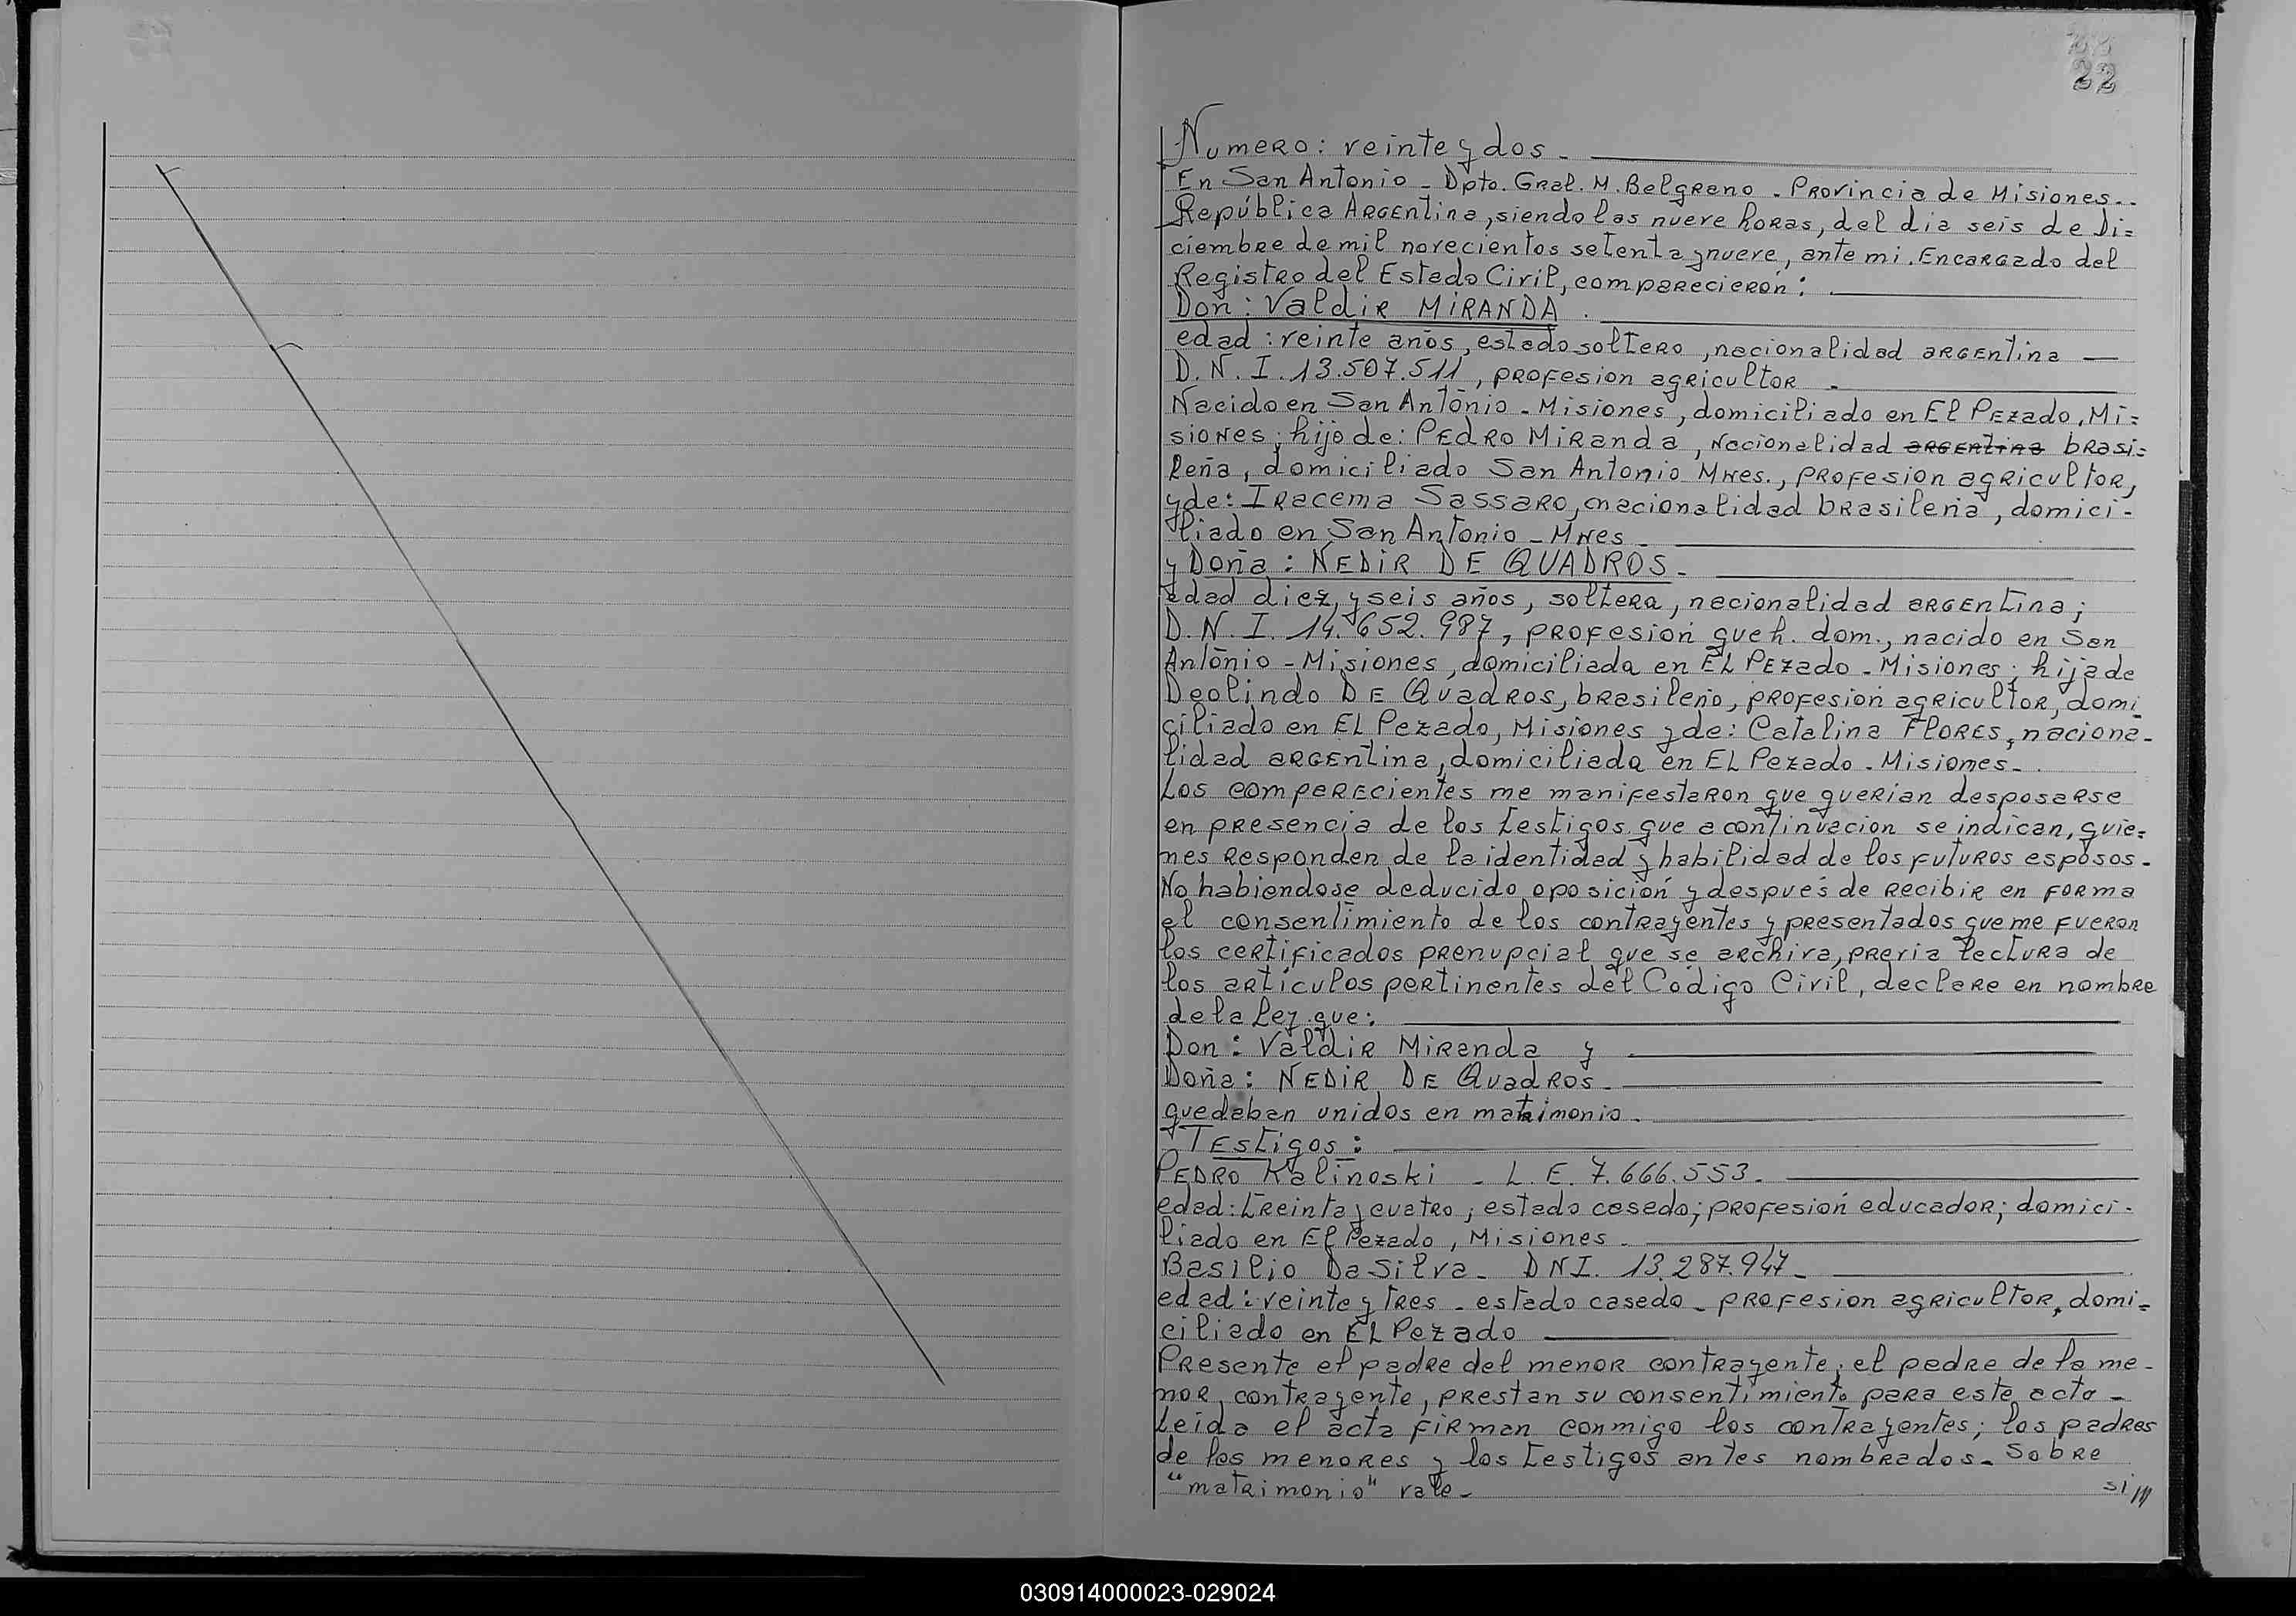 22
Numero: veinte y dos -
En San Antonio - Dpto. Gral. M. Belgrano - Provincia de Misiones..
República Argentina, siendo las nueve horas, del dia seis de Di=
ciembre de mil novecientos setenta y nueve, ante mi. Encargado del
Registro del Estado Civil, comparecierón:
Don: Valdir MIRANDA.
edad: veinte años, estado soltero, nacionalidad argentina —
D.N.I. 13.507.511, profesion agricultor -
Nacido en San Antonio - Misiones, domiciliado en El Pezado, Mi=
siones; hijo de: Pedro Miranda, nacionalidad argentina brasi=
leña, domiciliado San Antonio Mnes., profesion agricultor,
y de: Iracema Sassaro, nacionalidad brasileña, domici-
liado en San Antonio - Mnes -
y Doña: NEDIR DE QUADROS -
edad diez y seis años, soltera, nacionalidad argentina;
D.N.I. 14.652.987, profesión que h. dom., nacido en San
Antonio - Misiones, domiciliada en El Pezado - Misiones; hija de
Deolindo De Quadros, brasileño, profesión agricultor, domi-
ciliado en El Pezado, Misiones y de: Catalina Flores, naciona-
lidad argentina, domiciliada en El Pezado - Misiones -
Los comparecientes me manifestaron que querian desposarse
en presencia de los testigos que a continuacion se indican, quie=
nes responden de la identidad y habilidad de los futuros esposos -
No habiendose deducido oposición y después de recibir en forma
el consentimiento de los contrayentes y presentados que me fueron
los certificados prenupcial que se archiva, previa lectura de
los artículos pertinentes del Código Civil, declare en nombre
de la ley que:
Don: Valdir Miranda y
Doña: NEDIR DE Quadros -
quedaban unidos en matrimonio -
Testigos:
Pedro Kalinoski - L.E. 7.666.553 -
edad: treinta y cuatro; estado casado; profesión educador; domici-
liado en El Pezado, Misiones -
Basilio DaSilva - DNI. 13.287.947 -
edad: veinte y tres - estado casado - profesion agricultor, domi=
ciliado en El Pezado
Presente el padre del menor contrayente; el padre de la me-
nor, contrayente, prestan su consentimiento para este acto -
Leida el acta firman conmigo los contrayentes; los padres
de los menores y los testigos antes nombrados - Sobre
"matrimonio" vale -
030914000023-029024